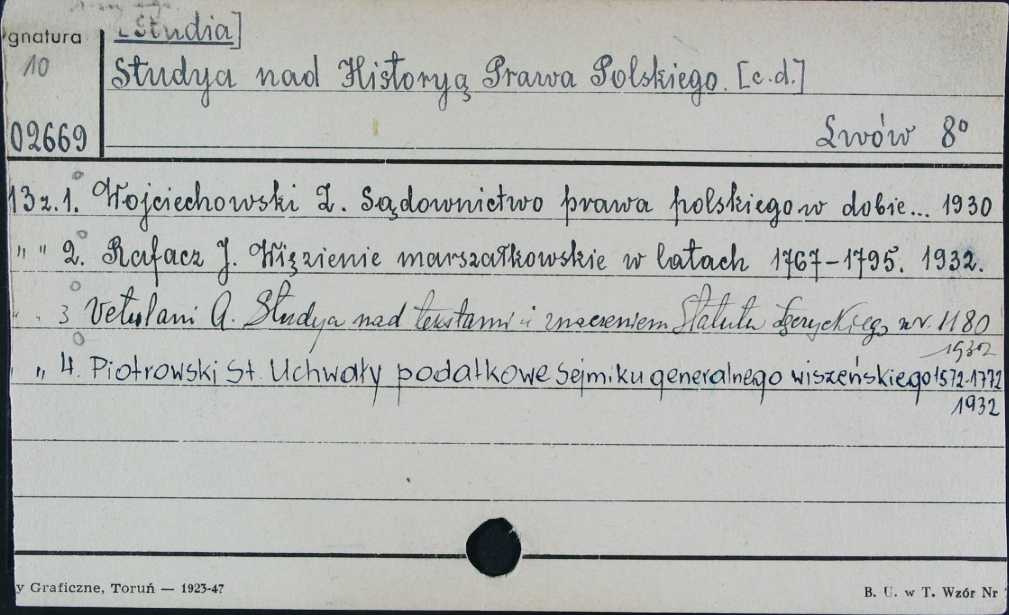 gnatura
[Studia]
10
Studya nad Historyą Prawa Polskiego. [c.d.]
02669
Lwów 8°
13 z. 1. Wojciechowski Z. Sądownictwo prawa polskiego w dobie... 1930
" " 2. Rafacz J. Więzienie marszałkowskie w latach 1767-1795. 1932.
" " 3 Vetulani A. Studya nad tekstami i znaczeniem Statutu Łęczyckiego z r. 1180
1932
" " 4. Piotrowski St. Uchwały podatkowe sejmiku generalnego wiszeńskiego 1572-1772
1932
y Graficzne, Toruń — 1923-47
B. U. w T. Wzór Nr